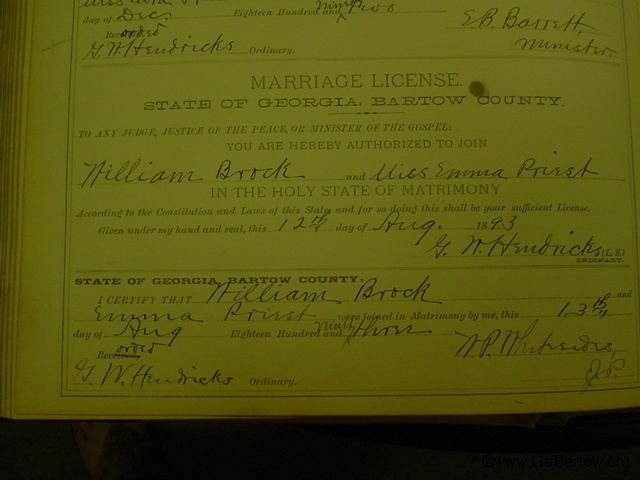 day of Dec. Eighteen Hundred and Ninety two
Recorded E.B. Barrett,
G. W. Hendricks Ordinary. Minister.
MARRIAGE LICENSE.
STATE OF GEORGIA, BARTOW COUNTY.
TO ANY JUDGE, JUSTICE OF THE PEACE, OR MINISTER OF THE GOSPEL:
YOU ARE HEREBY AUTHORIZED TO JOIN
William Brock and Miss Emma Priest
IN THE HOLY STATE OF MATRIMONY
According to the Constitution and Laws of this State, and for so doing this shall be your sufficient License.
Given under my hand and seal, this 12th day of Aug. 1893
G. W. Hendricks (L.S.)
ORDINARY.
STATE OF GEORGIA, BARTOW COUNTY:
I CERTIFY THAT William Brock and
Emma Priest were joined in Matrimony by me, this 13th
day of Aug Eighteen Hundred and Ninety three
Recorded W.P. J.P.
G. W. Hendricks Ordinary.
©www.GaBartow.org